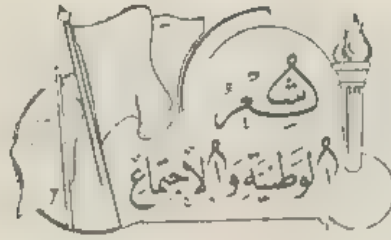 شِعْر
الْوَطَنِيَّةِ وَالْاجْتِمَاعِ